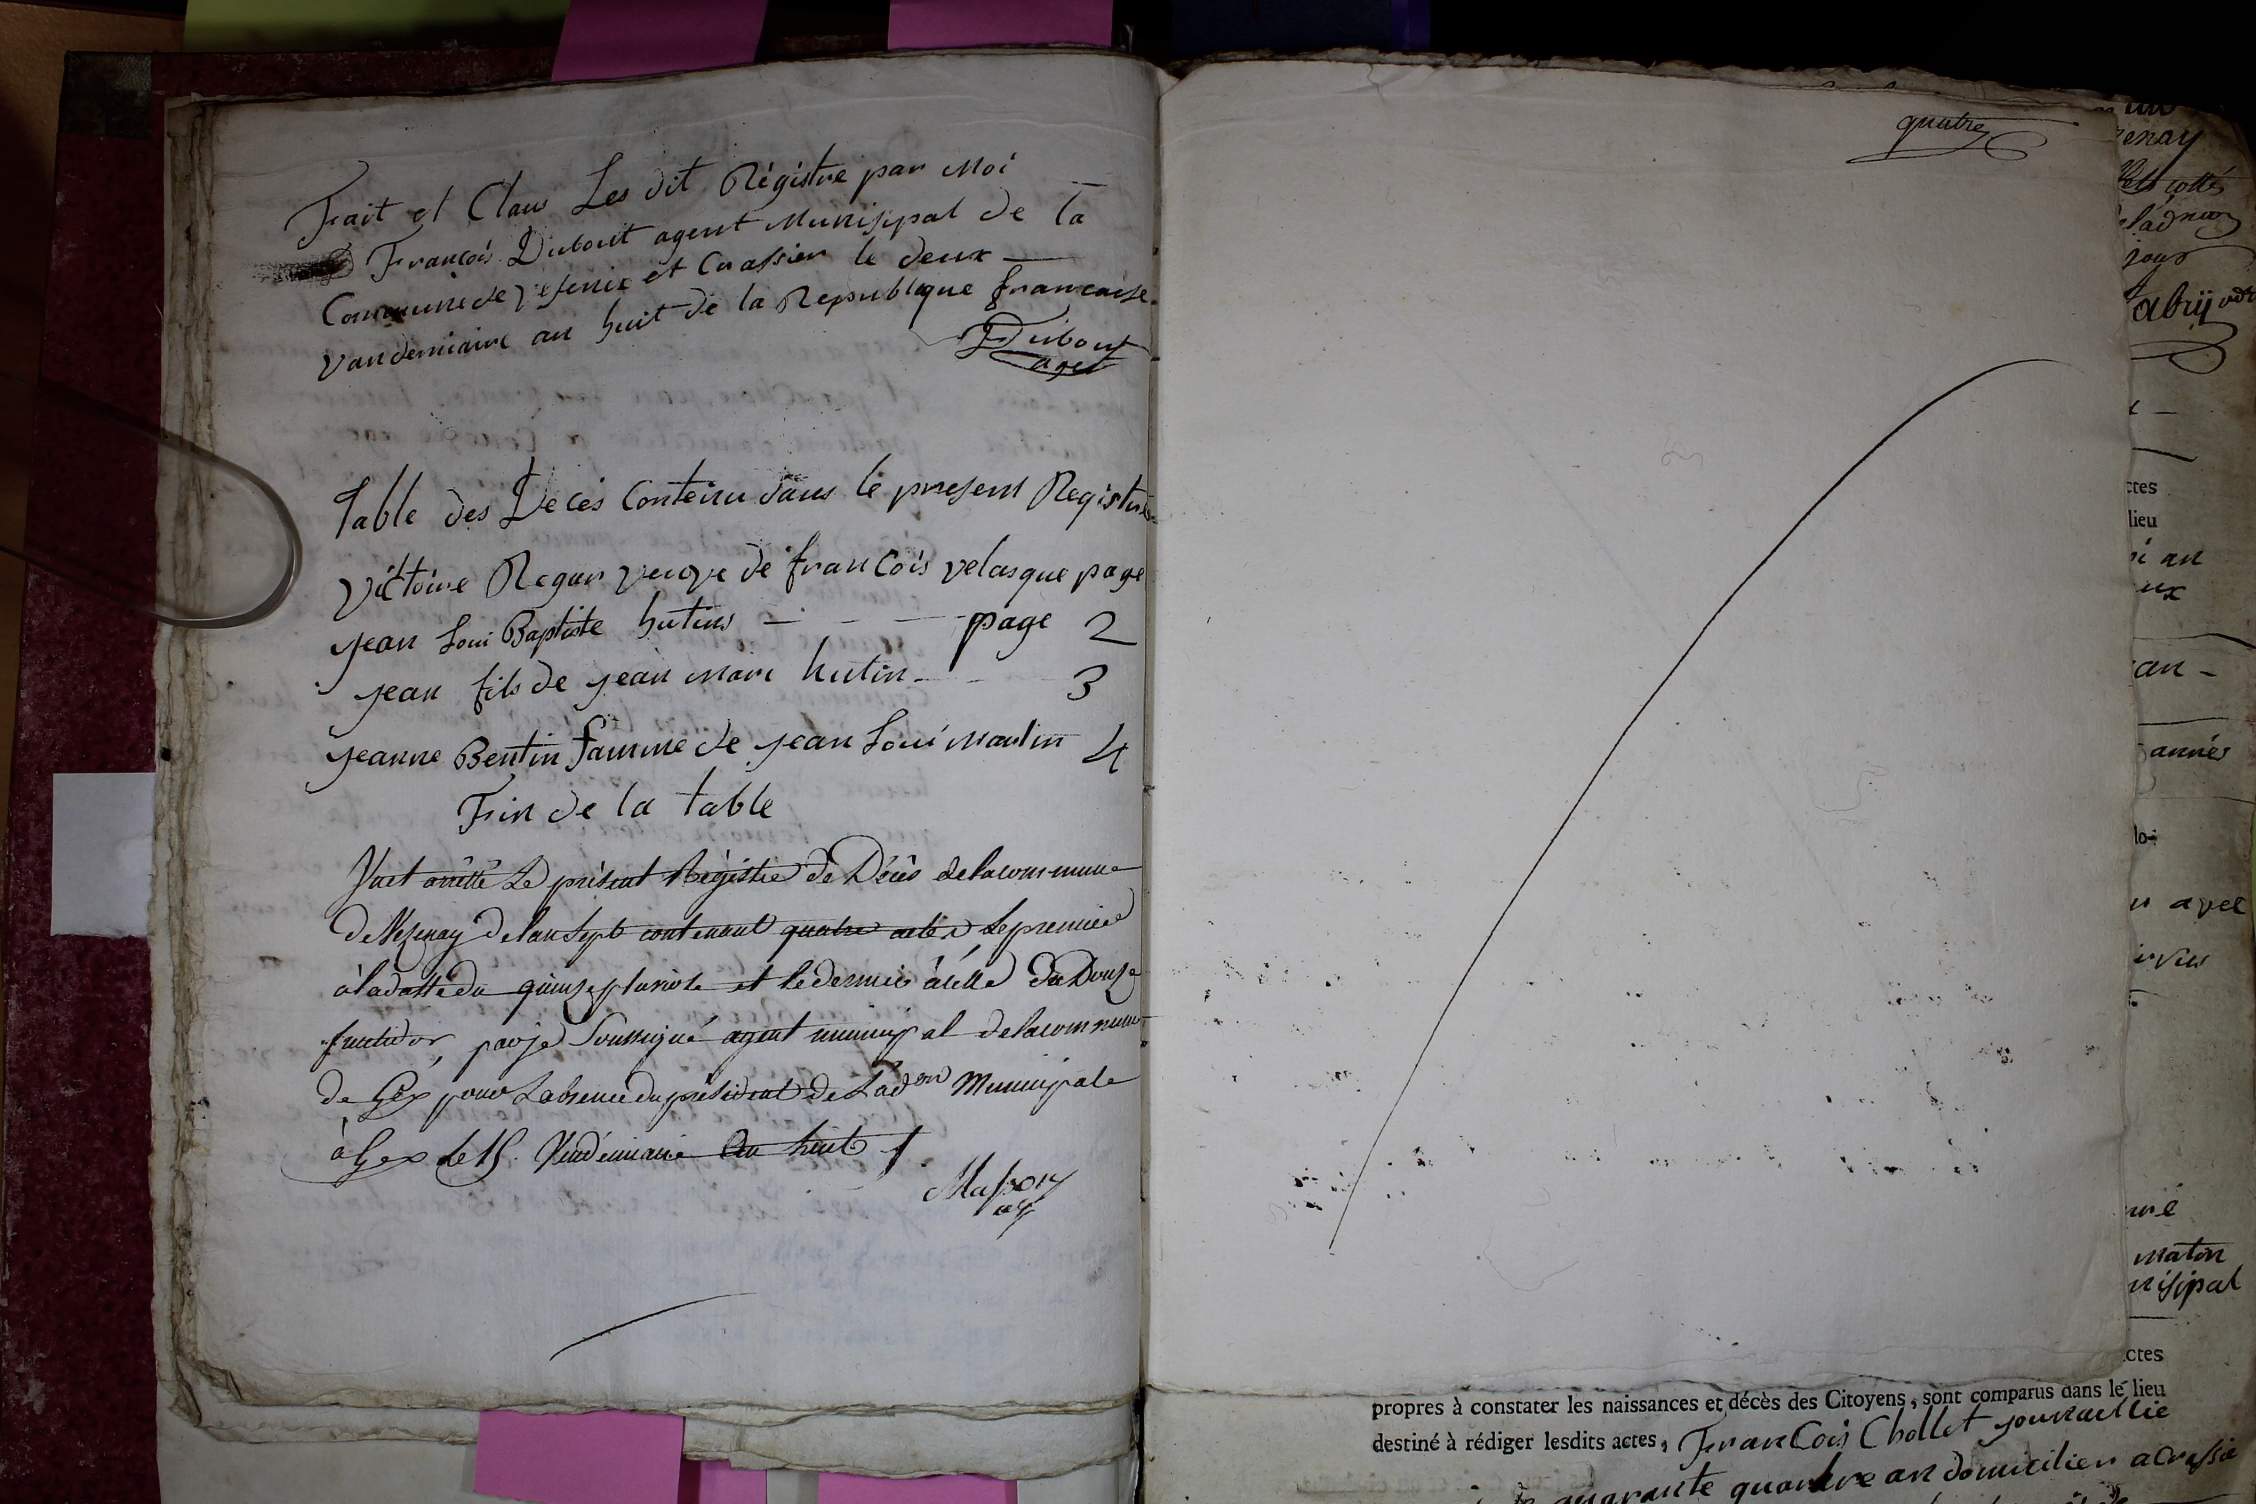 Fait et Claus Les dit Régistre par Moi
François Dubout agent Munisipal de la
Commune de Vesenex et Crassier le deux
Vandemiaire an huit de la Republique francaise
Dubout
aget
Table des Décés Conteinu dans le present Registre
Victoire Regar veuve de francois velasque page
jean Loui Baptiste hutins - - - page 2
jean fils de jean marc hutin - - 3
jeanne Bentin famme de jean Loui martin 4
Fin de la table
Vu et arrêtté Le présent Régistre de Décès de la commune
de Vezenay de l'an Sept contenant quatre actes Le premier
à la datte du quinze pluviose et le dernier à celle du Douze
fructidor, par je Soussigné agent municipal de la commune
de Gex pour L'absence du président de L'ad.on Municipale
à Gex le 15. Vendémiaire An huit
Masson
ag
quatre
enay
jour
ctes
lieu
an
ux
an -
année
avec
maton
nisipal
ctes
propres à constater les naissances et décès des Citoyens, sont comparus dans le lieu
destiné à rédiger lesdits actes, François Chollet journallie
quarante quardre an domicilier a Crassie